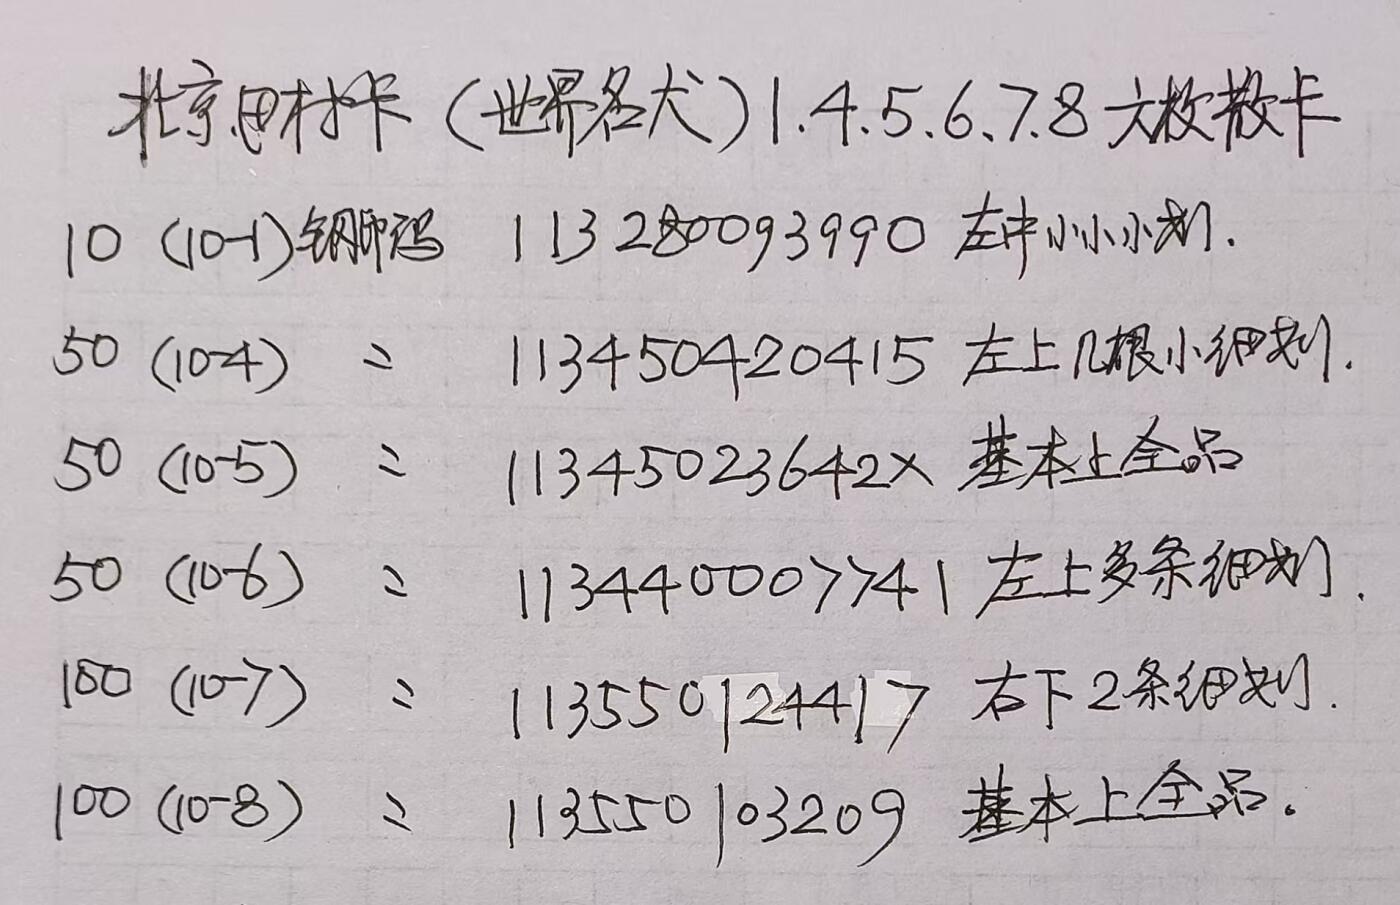 北京电村卡（世界名犬）1.4.5.6.7.8六枚散卡
10 (10-1)钢印码 113280093990 左中小小小划.
50 (10-4) = 113450420415 左上几根小细划.
50 (10-5) = 11345023642X 基本上全品
50 (10-6) = 113440007741 左上多条细划.
100 (10-7) = 113550124417 右下2条细划.
100 (10-8) = 113550103209 基本上全品.